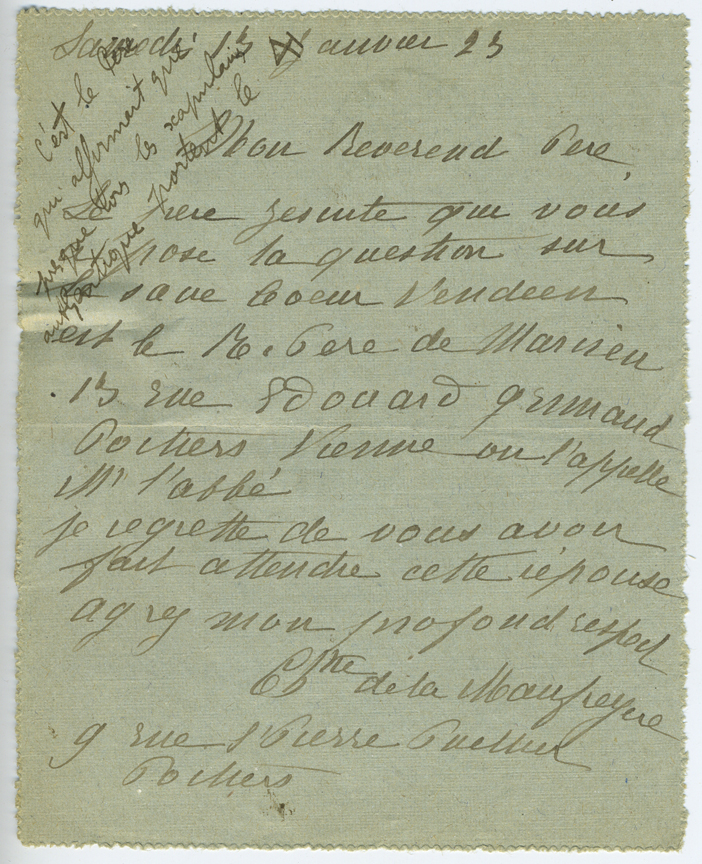 Samedi 13 Janvier 23
c'est le Père
qui affirmait que
presque tous les scapulaires
authentique portent le
Mon Reverend Pere
Le Pere jesuite qui vous
pose la question sur
le sacre Coeur Vendeen
est le R. Pere de
13 rue Edouard Grimaud
Poitiers Vienne on l'appelle
Mr l'abbé
je regrette de vous avoir
fait attendre cette reponse
agrez mon profond respect
Ctsse de la
9 rue St Pierre Puellier
Poitiers